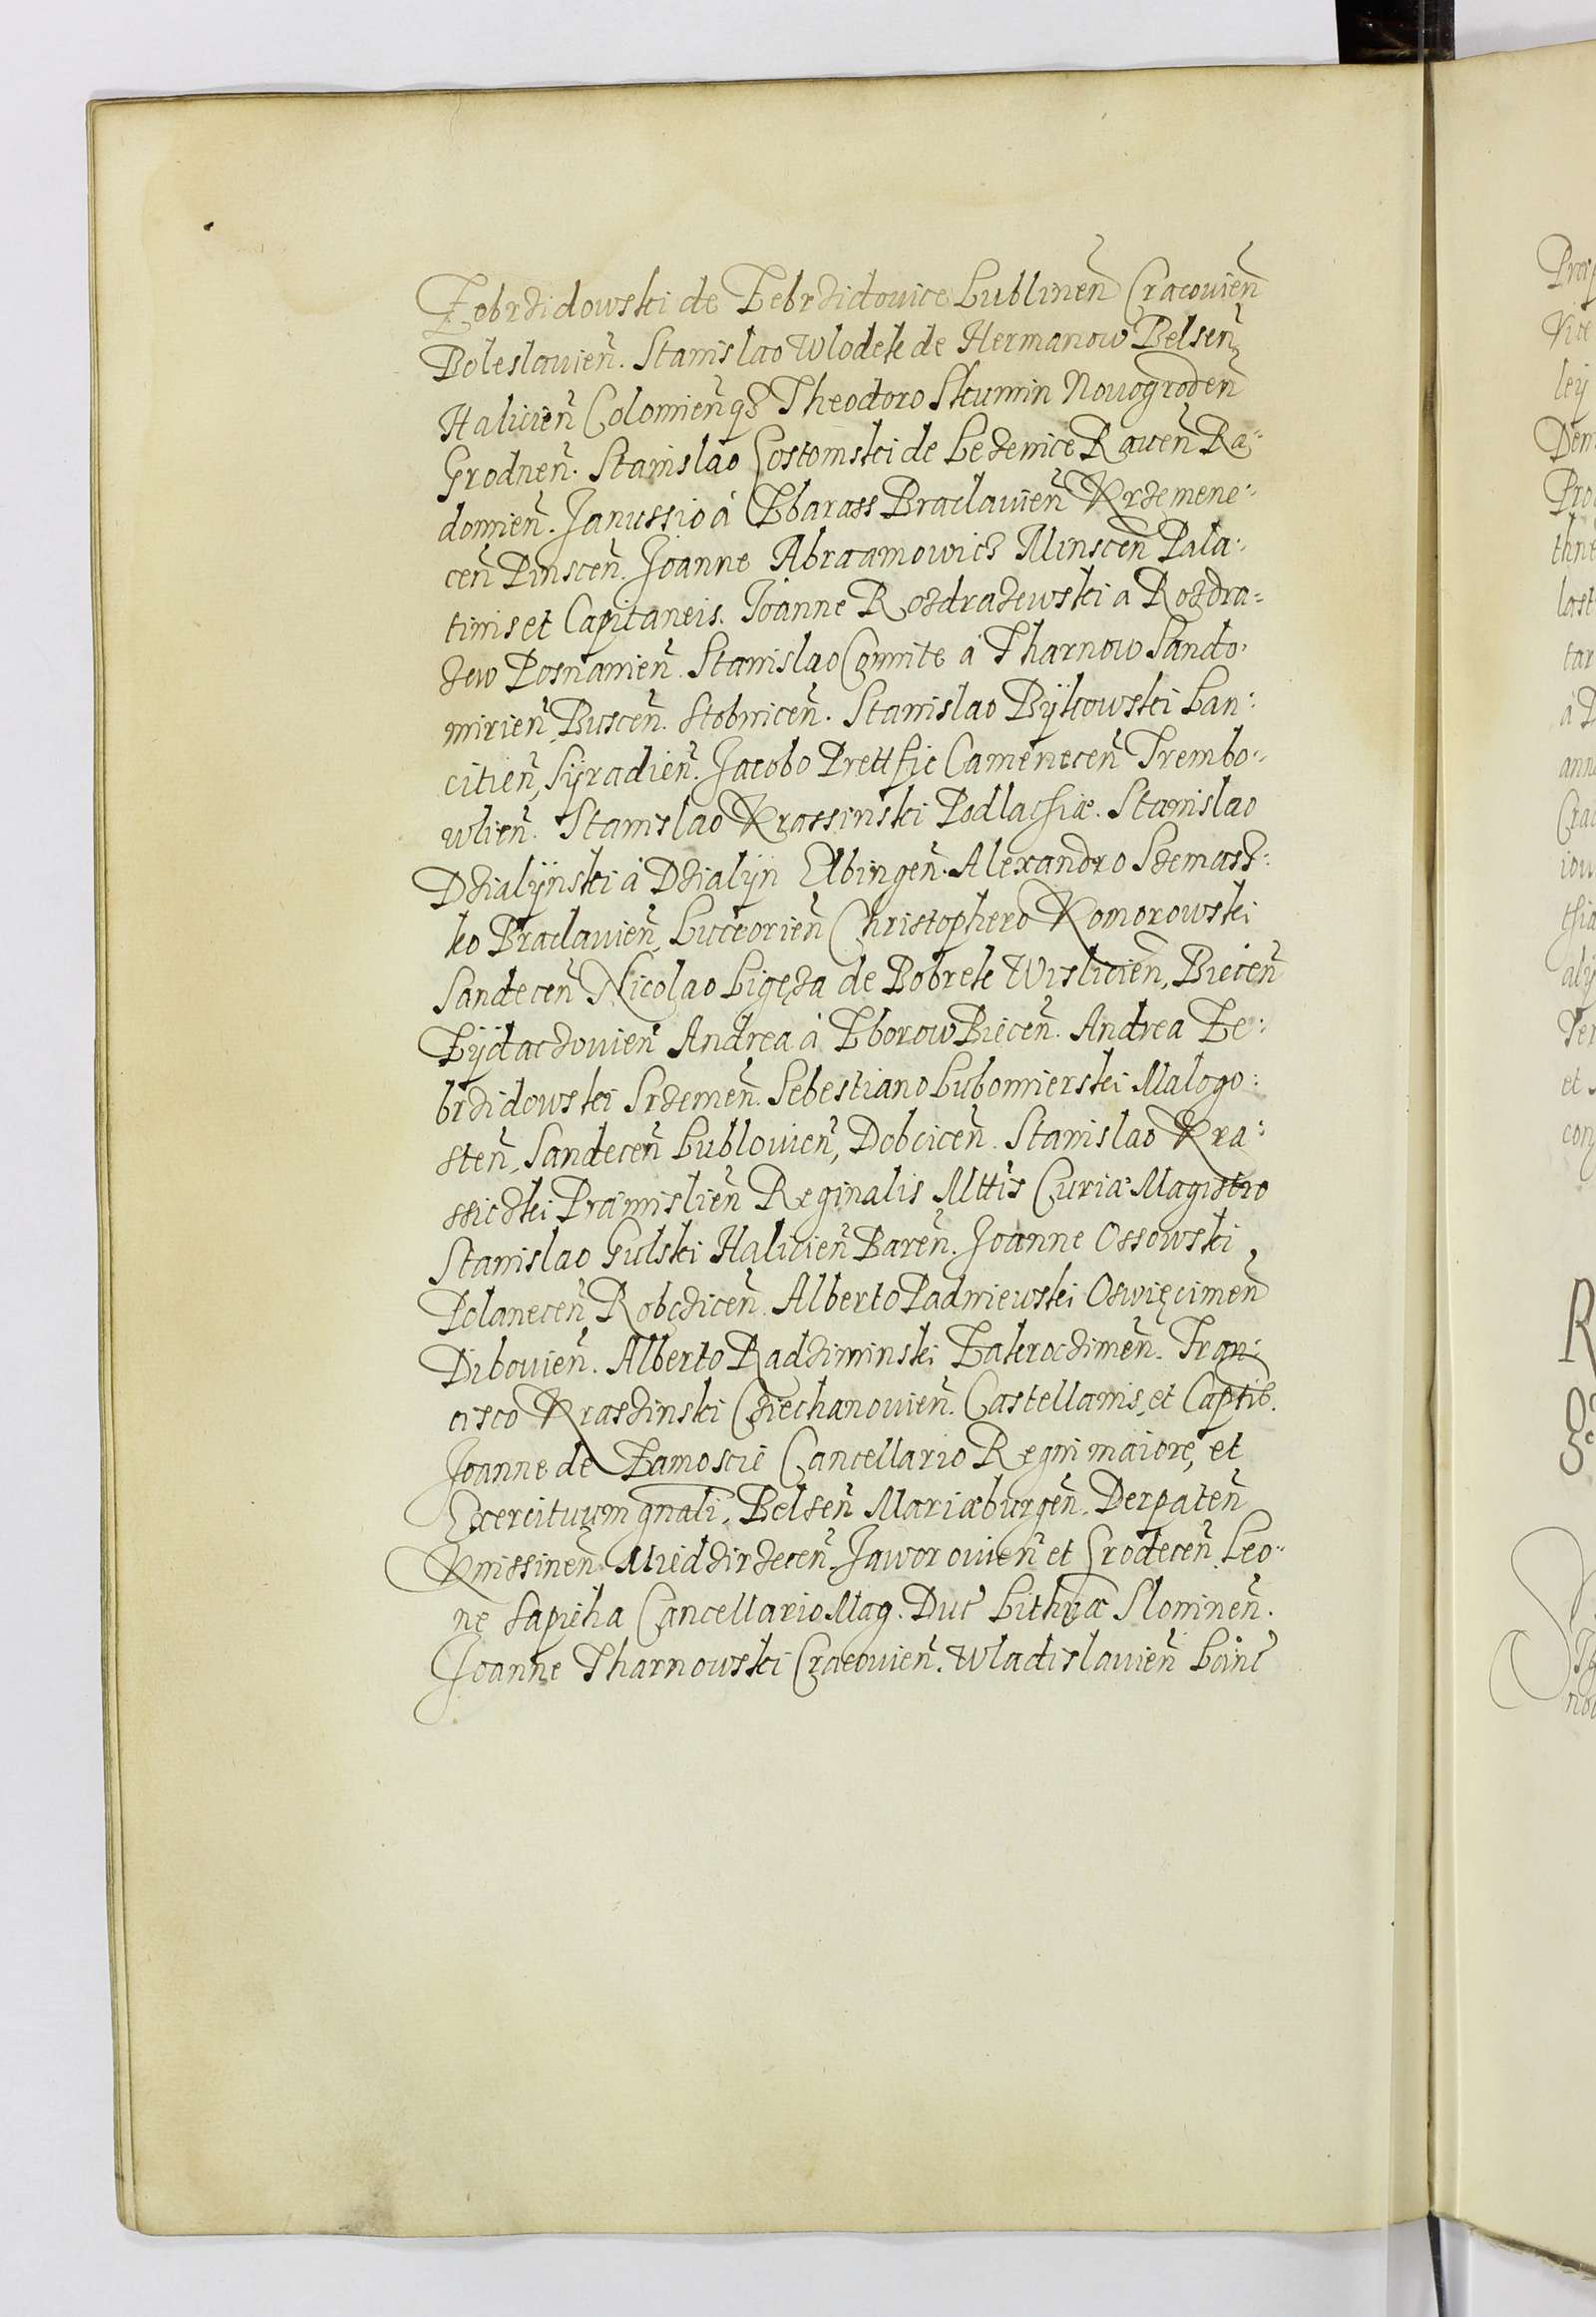 Zebrzidowski de Zebrzidovice Lublinen̄ Cracovien̄
Boleslavien̄. Stanislao Wlodek de Hermanow Belsen̄
Halicien̄ Colomien̄qȝ Theodoro Skumin Novogroden̄
Grodnen̄. Stanislao Gostomski de Lezenice Raven̄ Ra:
domien̄. Janussio á Zbarass Braclavien̄ Krzemene:
cen̄ Pinscen̄. Joanne Abraamowicz Minscen̄ Pala:
tinis et Capitaneis. Joanne Rozdrazewski a Rozdra:
zew Posnanien̄. Stanislao Comite á Tharnow Sando:
mirien̄ Buscen̄. Stobnicen̄. Stanislao Bÿkowski Lan:
citien̄, Sÿradien̄. Jacobo Prettfic Camenecen̄ Trembo:
wlien̄. Stanislao Krassinski Podlachiæ. Stanislao
Dzialÿnski á Dzialÿn Elbingen̄. Alexandro Szemasz:
ko Braclavien̄, Luceorien̄ Christophero Komorowski
Sandecen̄ Nicolao Ligęza de Bobrek Wislicien̄, Biecen̄
Zÿdaczovien̄ Andrea á Zborow Biecen̄. Andrea Ze:
brzidowski Srzemen̄. Sebestiano Lubomierski Malogo:
sten̄, Sandecen̄ Lublovien̄, Dobcicen̄. Stanislao Kra:
ssiczki Præmislien̄ Reginalis Mttis Curiæ Magistro
Stanislao Gulski Halicien̄ Baren̄. Joanne Ossowski
Polanecen̄, Robczicen̄. Alberto Padniewski Oswięcimen̄
Dibovien̄. Alberto Radziminski Zakroczimen̄. Fran:
cisco Kraszinski Cziechanovien̄. Castellanis, et Captib.
Joanne de Zamoscie Cancellario Regni maiore, et
Exercituum gnali, Belsen̄ Mariæburgen̄. Derpaten̄
Knissinen̄ Miedzirzecen̄ Jaworovien̄ et Grodecen̄. Leo:
ne Sapieha Cancellario Mag. Duc Lithuæ Slonimen̄.
Joanne Tharnowski Cracovien̄. Wladislavien̄ Lanc